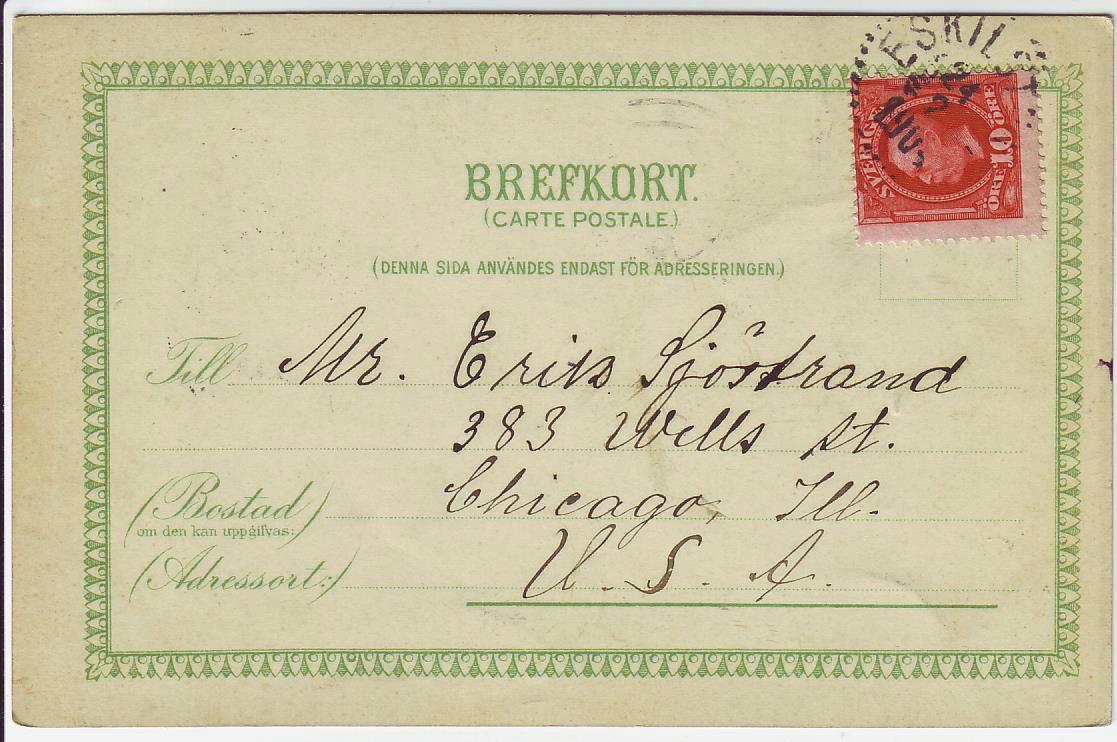 BREFKORT.
(CARTE POSTALE.)
(DENNA SIDA ANVÄNDES ENDAST FÖR ADRESSERINGEN.)
ESKIL
SVERIGE
10
ÖRE
ÖRE
Till Mr. Erik Sjöstrand
383 Wells st.
(Bostad) Chicago, Ill.
om den kan uppgifvas:
(Adressort:) U. S. A.